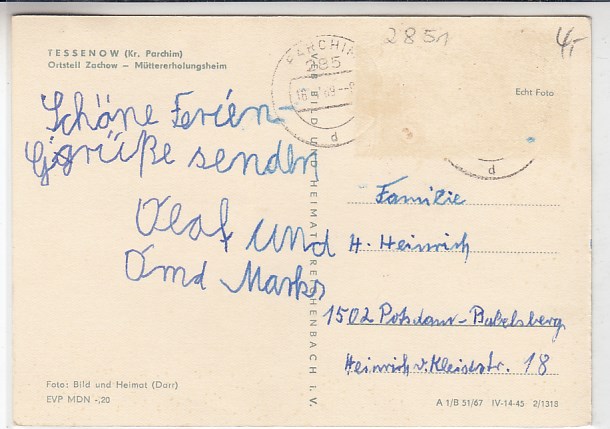 TESSENOW (Kr. Parchim)
Ortsteil Zachow – Müttererholungsheim
PARCHIM
285
2851
4,-
Echt Foto
Schöne Ferien-
grüße senden
Olaf und
Marks
Familie
H. Heinrich
1502 Potsdam-Babelsberg
Heinrich v. Kleiststr. 18
VEB BILD UND HEIMAT REICHENBACH i. V.
Foto: Bild und Heimat (Darr)
EVP MDN -,20
A 1/B 51/67 IV-14-45 2/1318